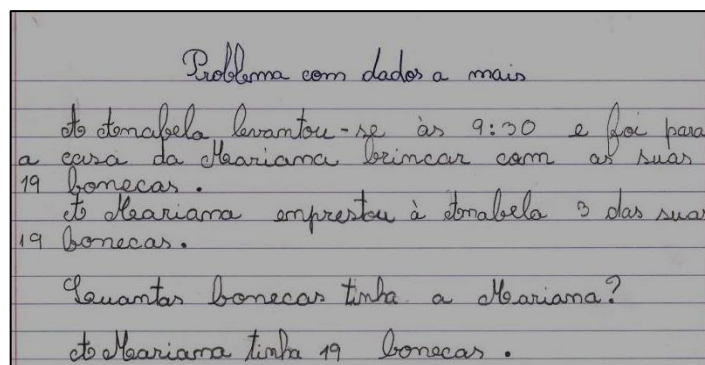 Problema com dados a mais
A Anabela levantou-se às 9:30 e foi para
a casa da Mariana brincar com as suas
19 bonecas.
A Mariana emprestou à Anabela 3 das suas
19 bonecas.
Quantas bonecas tinha a Mariana?
A Mariana tinha 19 bonecas.